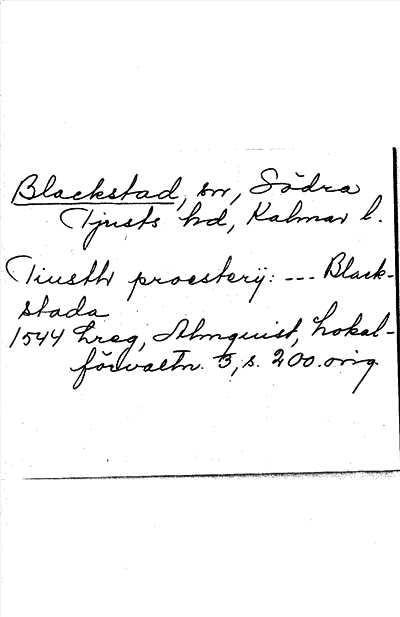 Blackstad, sn, Södra
Tjusts hd, Kalmar l.
Tiusth proesterij: --- Black-
stada
1544 hreg, Almquist, Lokal-
förvaltn. 3, s. 200. orig.